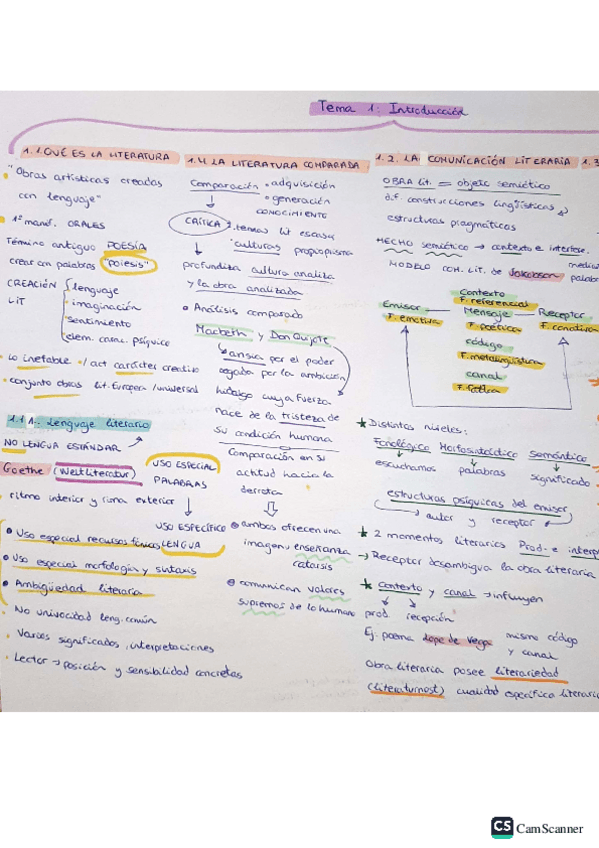 Tema 1: Introducción
1.1. QUÉ ES LA LITERATURA
"Obras artísticas creadas
con lenguaje"
1ª manif. ORALES
Término antiguo POESÍA
crear con palabras "poiesis"
CREACIÓN LIT
lenguaje
imaginación
sentimiento
elem. carac. psíquico
lo inefable / act carácter creativo
conjunto obras lit. Europea / universal
1.1.1. Lenguaje literario
NO LENGUA ESTÁNDAR
Goethe (Weltliteratur)
USO ESPECIAL
PALABRAS
ritmo interior y rima exterior
USO ESPECÍFICO
LENGUA
Uso especial recursos fónicos
Uso especial morfología y sintaxis
Ambigüedad literaria
No univocidad leng. común
Varios significados, interpretaciones
Lector → posición y sensibilidad concretas
1.4. LA LITERATURA COMPARADA
Comparación • adquisición
• generación
CONOCIMIENTO
CRÍTICA
temas lit escasa
culturas
profundiza cultura analiza
y la obra analizada
• Análisis comparado
Macbeth y Don Quijote
ansia por el poder
cegada por la ambición
hidalgo cuya fuerza
nace de la tristeza de
su condición humana
Comparación en su
actitud hacia la
derrota
ambos ofrecen una
imagen y enseñanza
catarsis
comunican valores
supremos de lo humano
1.2. LA COMUNICACIÓN LITERARIA
1.3
OBRA lit. = objeto semiótico
dif. construcciones lingüísticas y
estructuras pragmáticas
HECHO semiótico → contexto e interfese.
MODELO COM. LIT. de Jakobson
palabr
Contexto
F. referencial
Emisor
Mensaje
Receptor
F. emotiva
F. poética
F. conativa
código
F. metalingüística
canal
F. fática
★ Distintos niveles:
Fonológico Morfosintáctico Semántico
escuchamos palabras significado
estructuras psíquicas del emisor
autor y receptor
★ 2 momentos literarios Prod. e interp
→ Receptor desambigua la obra literaria
★ Contexto y canal → influyen
prod. recepción
Ej. poema Lope de Vega mismo código
y canal
Obra literaria posee literariedad
(literaturnost) cualidad específica literaria
CS CamScanner